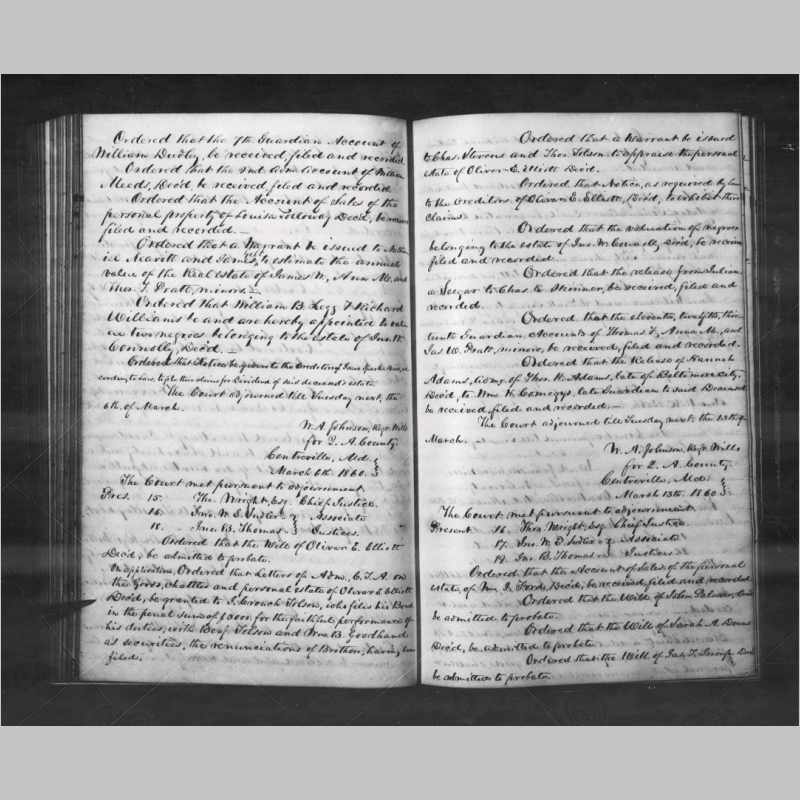 Ordered that the 7th Guardian Account of
William Dudley, be received, filed and recorded
Ordered that the and Adm account of William
Meeds, Dec'd, be received, filed and recorded
Ordered that the Account of Sales of the
personal property of Louisa Holloway Dec'd, be
filed and recorded.—
Ordered that a Warrant be issued to
Nearitt and James to estimate the annual
value of the Real estate of James W., Anna M., and
Thos. F. Pratt, minors.—
Ordered that William B. Legg & Richard
Williams be and are hereby appointed to
two negroes belonging to the estate of Jno. W.
Connolly, Dec'd.—
Ordered that Notice be given to the Creditors of Isaac
to Law, to file their claims for Dividend of said deceased's estate
The Court adjourned till Tuesday next, the
6th of March.
W. A. Johnson, Regr. Wills
for Q. A. County
Centreville, Md.
March 6th 1860.
The Court met pursuant to adjournment.
Pres. 15. Tho. Wright, Esq. Chief Justice.
16. Jno. W. E. Sudler Associate
18. Jno. B. Thomas Justices.
Ordered that the Will of Oliver E. Elliott
Dec'd, be admitted to probate.
On application, Ordered that Letters of Adm. C.T.A. on
the Goods, chattels and personal estate of Oliver E. Elliott
Dec'd, be granted to J. Crouch Tolson, who files his Bond
in the penal sum of for the faithful performance of
his duties, with Benj. Tolson and Wm. B. Goodhand
as securities, the renunciations of Brother, having been
filed.
Ordered that a Warrant be issued
to Chas. Stevens and Thos. Tolson to appraise the personal
estate of Oliver E. Elliott Dec'd.
Ordered that Notice, as required by Law
to the Creditors of Oliver E. Elliott, Dec'd, to exhibit their
Claims.
Ordered that the valuation of negroes
belonging to the estate of Jno. W. Connolly, Dec'd, be received
filed and recorded.
Ordered that the release from Julian
a Seegar to Chas. to Skinner, be received, filed and
recorded.
Ordered that the eleventh, twelfth, thir-
teenth Guardian Accounts of Thomas F., Anna M., and
Jas. W. Pratt, minors, be received, filed and recorded.
Ordered that the Release of Hannah
Adams, of Thos. H. Adams, late of Baltimore city,
Dec'd, to Wm. H. Comegys, late Guardian to said Deceased
be received, filed and recorded.—
The Court adjourned till Tuesday next, the 13th of
March.
W. A. Johnson, Regr. Wills
for Q. A. County
Centreville, Md.
March 13th. 1860
The Court met pursuant to adjournment.
Present 16. Thos. Wright, Esq. Chief Justice.
17. Jno. W. E. Sudler Associate
19. Jno. B. Thomas Justices
Ordered that the Account of Sales of the personal
estate of Wm. J. Ford, Dec'd, be received, filed and recorded
Ordered that the Will of Palmer,
be admitted to probate.
Ordered that the Will of Sarah A.
Dec'd, be admitted to probate.
Ordered that the Will of Jas. T.
be admitted to probate.